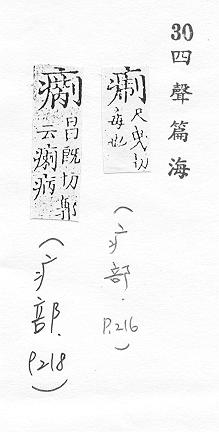 30
四聲篇海
尺曳切
也
(疒部.
P.216)
昌既切郭
云病
(疒部.
P218)